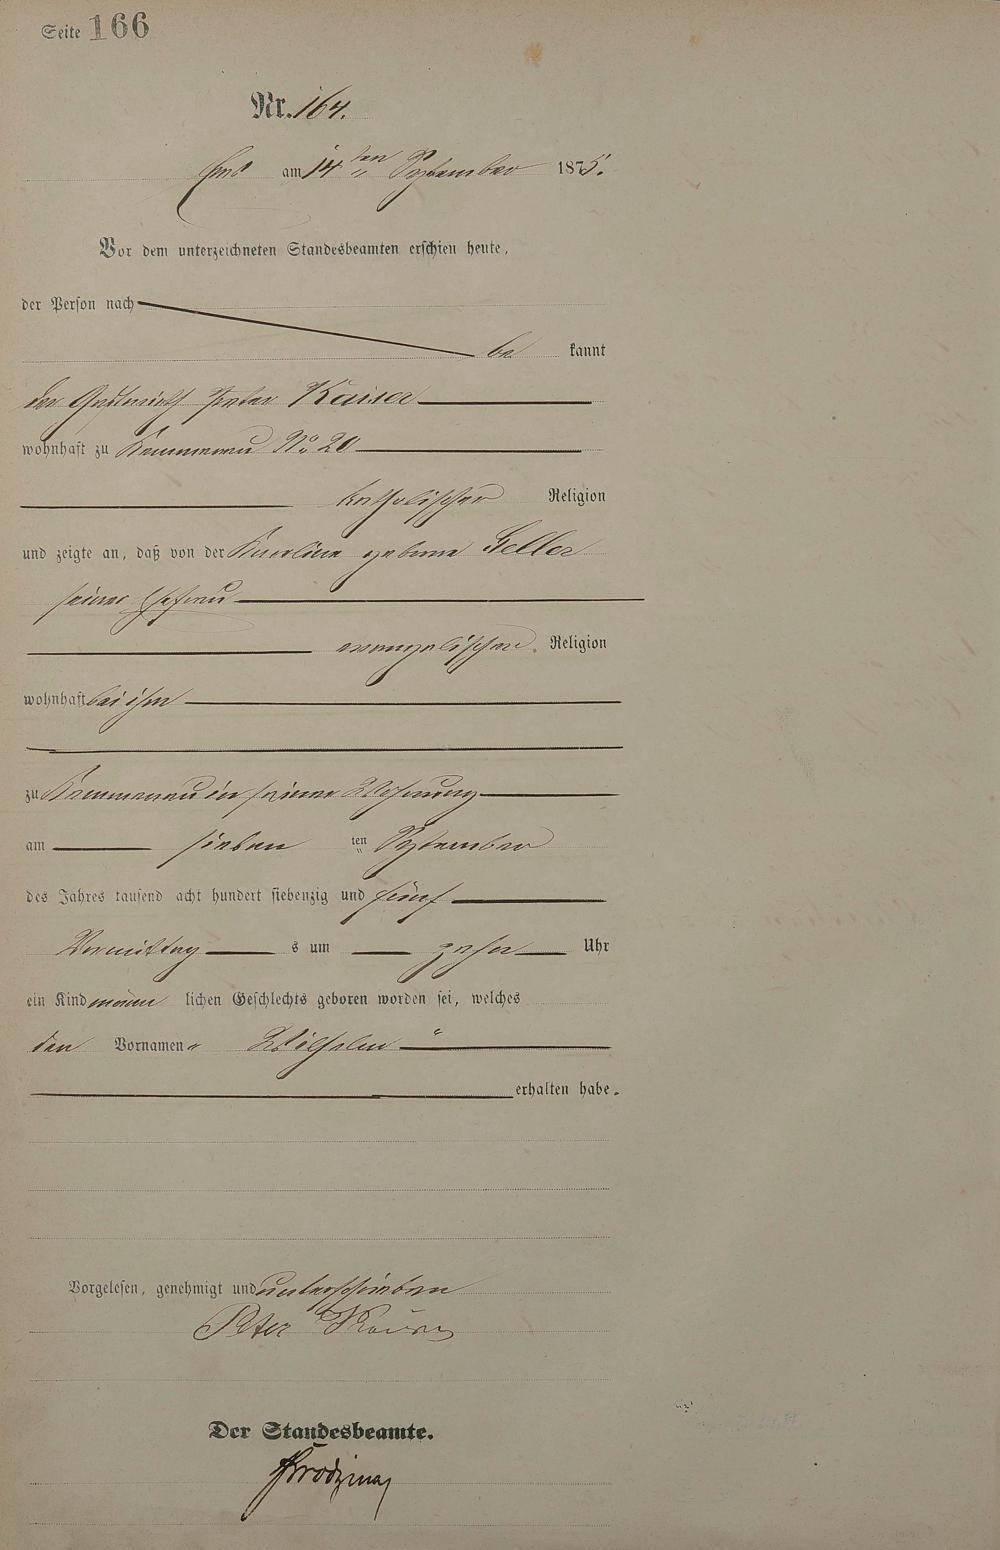 Seite 166
Nr. 164.
Ems am 14ten September 1875.
Vor dem unterzeichneten Standesbeamten erschien heute,
der Person nach
be kannt
der Gastwirth Peter Kaiser
wohnhaft zu Kemmenau No 20
katholischer Religion
und zeigte an, daß von der Karoline geborne Geller
seiner Ehefrau
evangelischer Religion
wohnhaft bei ihm
zu Kemmenau in seiner Wohnung
am sieben ten September
des Jahres tausend acht hundert siebenzig und fünf
Vormittag s um zehn Uhr
ein Kind männ lichen Geschlechts geboren worden sei, welches
den Vornamen " Wilhelm "
erhalten habe.
Vorgelesen, genehmigt und unterschrieben
Peter Kaiser
Der Standesbeamte.